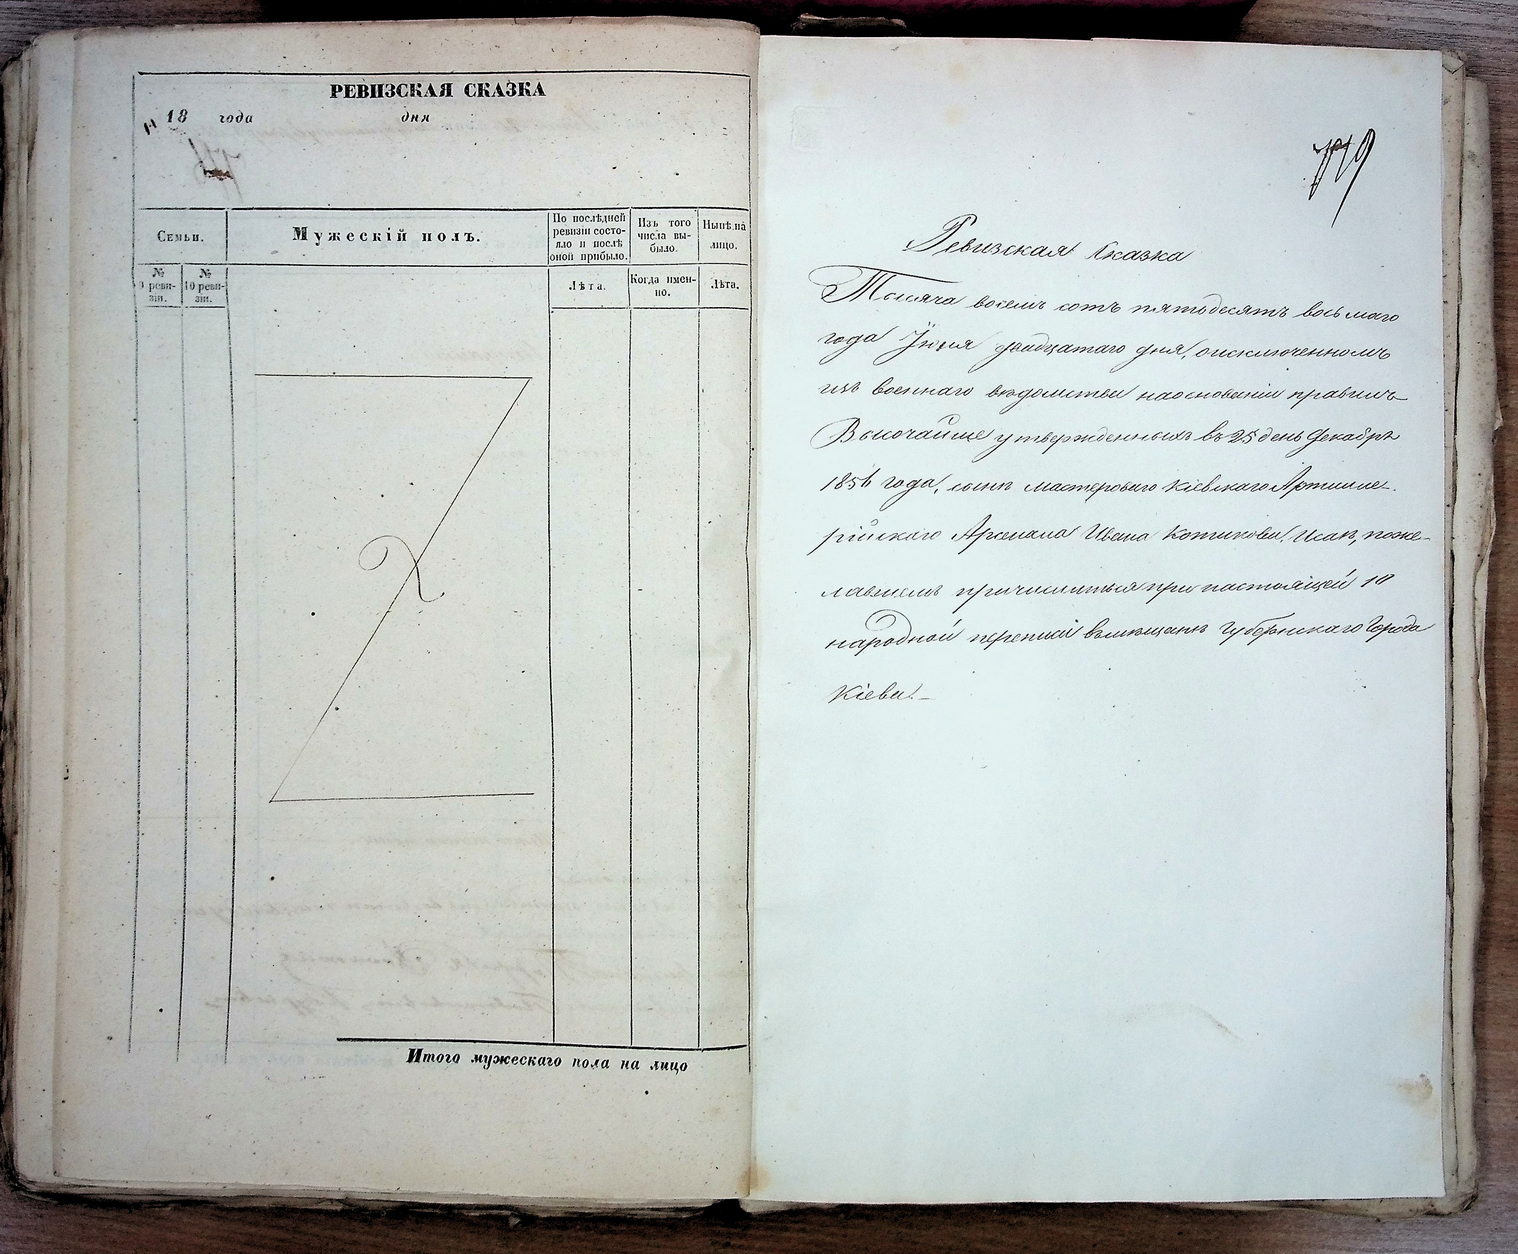 РЕВИЗСКАЯ СКАЗКА
18 года дня
Семьи.
Мужескій полъ.
По послѣдней ревизіи состояло и послѣ оной прибыло.
Изъ того числа выбыло.
Нынѣ на лицо.
№ 9 ревизіи.
№ 10 ревизіи.
Лѣта.
Когда именно.
Лѣта.
Итого мужескаго пола на лицо
719
Ревизская Сказка
Тысяча восемь сотъ пятьдесятъ восьмаго
года Іюня двадцатаго дня, о исключенномъ
изъ военнаго вѣдомства на основаніи правилъ
Высочайше утвержденныхъ въ 25 день Декабря
1856 года, сынѣ мастероваго Кіевскаго Артилле-
рійскаго Арсенала Ивана Котикова, Исаѣ, поже-
лавшемъ причислиться при настоящей 10
народной переписи въ мѣщане Губернскаго Города
Кіева.